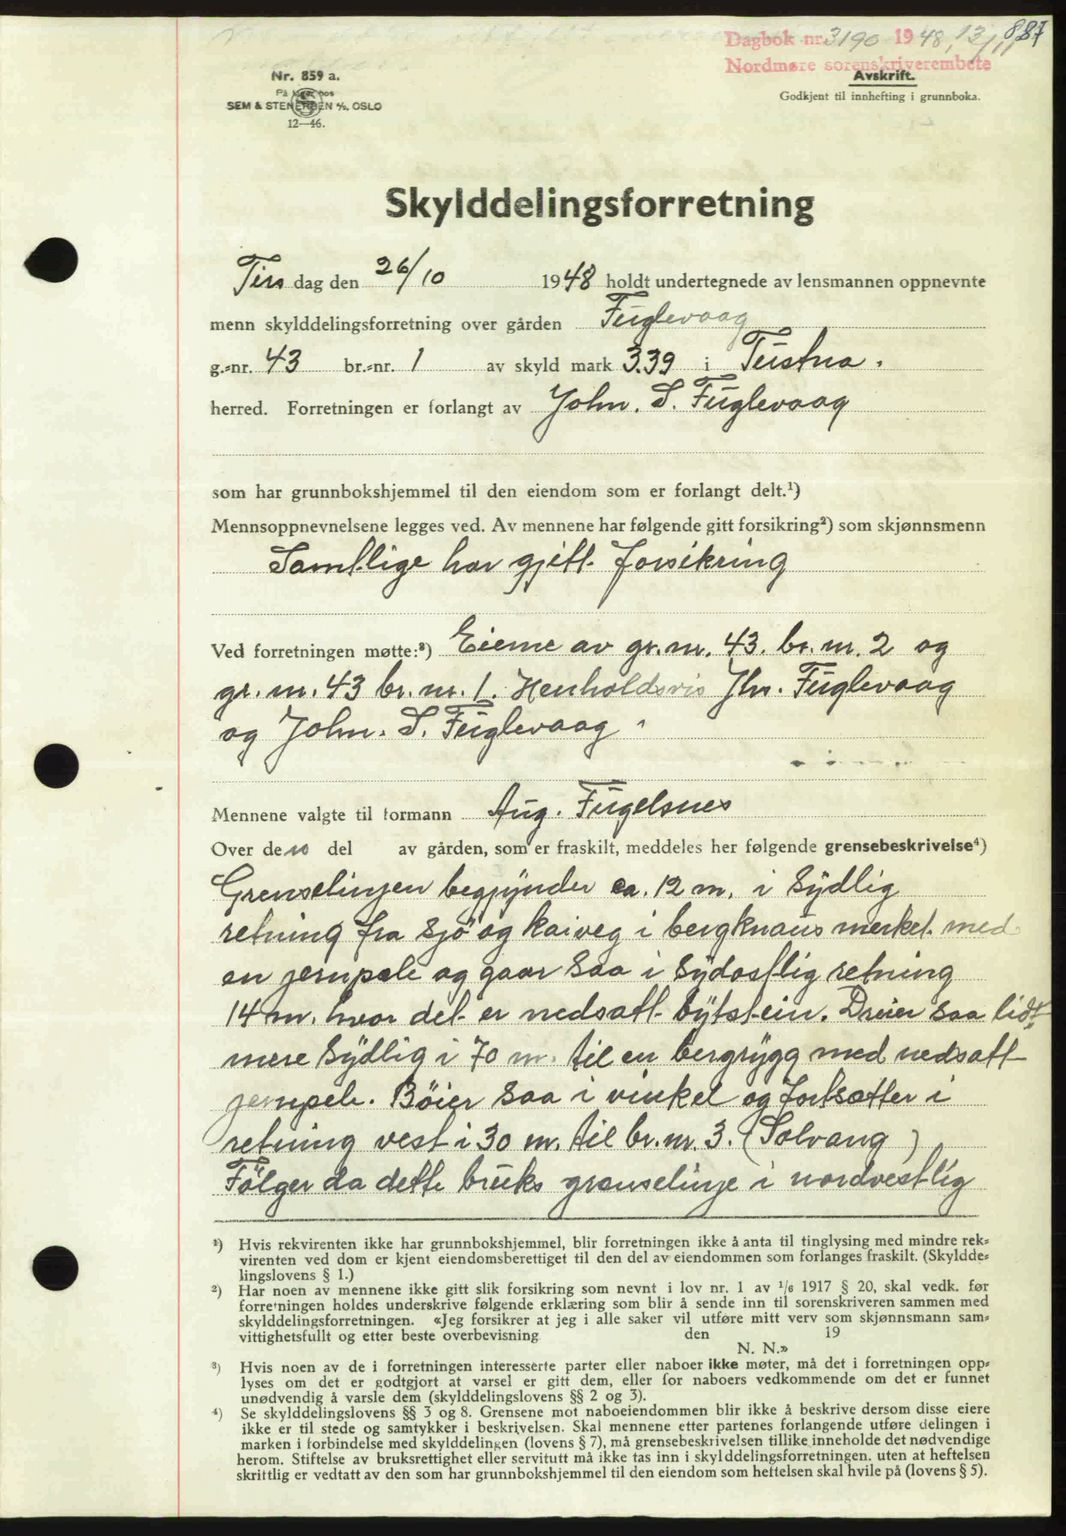 887
Dagbok nr. 3190 1948, 13/11
Nordmøre sorenskriverembete
Nr. 859 a.
På lager hos
SEM & STENERSEN A/S. OSLO
12—46.
Avskrift.
Godkjent til innhefting i grunnboka.
Skylddelingsforretning
Tirsdag den 26/10 1948 holdt undertegnede av lensmannen oppnevnte
menn skylddelingsforretning over gården Fuglevaag
g.-nr. 43 br.-nr. 1 av skyld mark 3.39 i Tustna.
herred. Forretningen er forlangt av John. S. Fuglevaag
som har grunnbokshjemmel til den eiendom som er forlangt delt.¹)
Mennsoppnevnelsene legges ved. Av mennene har følgende gitt forsikring²) som skjønnsmenn
Samtlige har gjett forsikring
Ved forretningen møtte:³) Eierne av gr.nr. 43. br.nr. 2 og
gr.nr. 43 br.nr. 1. Henholdsvis Jhs. Fuglevaag
og John. S. Fuglevaag.
Mennene valgte til formann Aug. Fugelsnes
Over den del av gården, som er fraskilt, meddeles her følgende grensebeskrivelse⁴)
Grenselinjen begynder ca. 12 m. i sydlig
retning fra sjö og kaiveg i bergknaus merket med
en jernpele og gaar saa i sydostlig retning
14 m. hvor det er nedsatt bytstein. Dreier saa lidt
mere sydlig i 70 m. til en bergrygg med nedsatt
jernpele. Böier saa i vinkel og fortsætter i
retning vest i 30 m. til br.nr. 3. (Solvang)
Fölger da dette bruks grænselinje i nordvestlig
¹) Hvis rekvirenten ikke har grunnbokshjemmel, blir forretningen ikke å anta til tinglysing med mindre rek-
virenten ved dom er kjent eiendomsberettiget til den del av eiendommen som forlanges fraskilt. (Skyldde-
lingslovens § 1.)
²) Har noen av mennene ikke gitt slik forsikring som nevnt i lov nr. 1 av 1/6 1917 § 20, skal vedk. før
forretningen holdes underskrive følgende erklæring som blir å sende inn til sorenskriveren sammen med
skylddelingsforretningen. «Jeg forsikrer at jeg i alle saker vil utføre mitt verv som skjønnsmann sam-
vittighetsfullt og etter beste overbevisning den 19
N. N.»
³) Hvis noen av de i forretningen interesserte parter eller naboer ikke møter, må det i forretningen opp-
lyses om det er godtgjort at varsel er gitt dem, eller for naboers vedkommende om det er funnet
unødvendig å varsle dem (skylddelingslovens §§ 2 og 3).
⁴) Se skylddelingslovens §§ 3 og 8. Grensene mot naboeiendommen blir ikke å beskrive dersom disse eiere
ikke er til stede og samtykker i beskrivelsen. Skal mennene etter partenes forlangende utføre delingen i
marken i forbindelse med skylddelingen (lovens § 7), må grensebeskrivelsen tillike inneholde det nødvendige
herom. Stiftelse av bruksrettighet eller servitutt må ikke tas inn i skylddelingsforretningen. uten at heftelsen
skriftlig er vedtatt av den som har grunnbokshjemmel til den eiendom som heftelsen skal hvile på (lovens § 5).